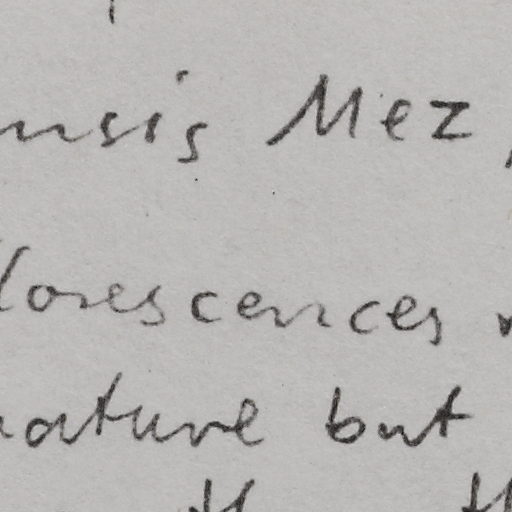 ensis Mez,
lorescences
nature but